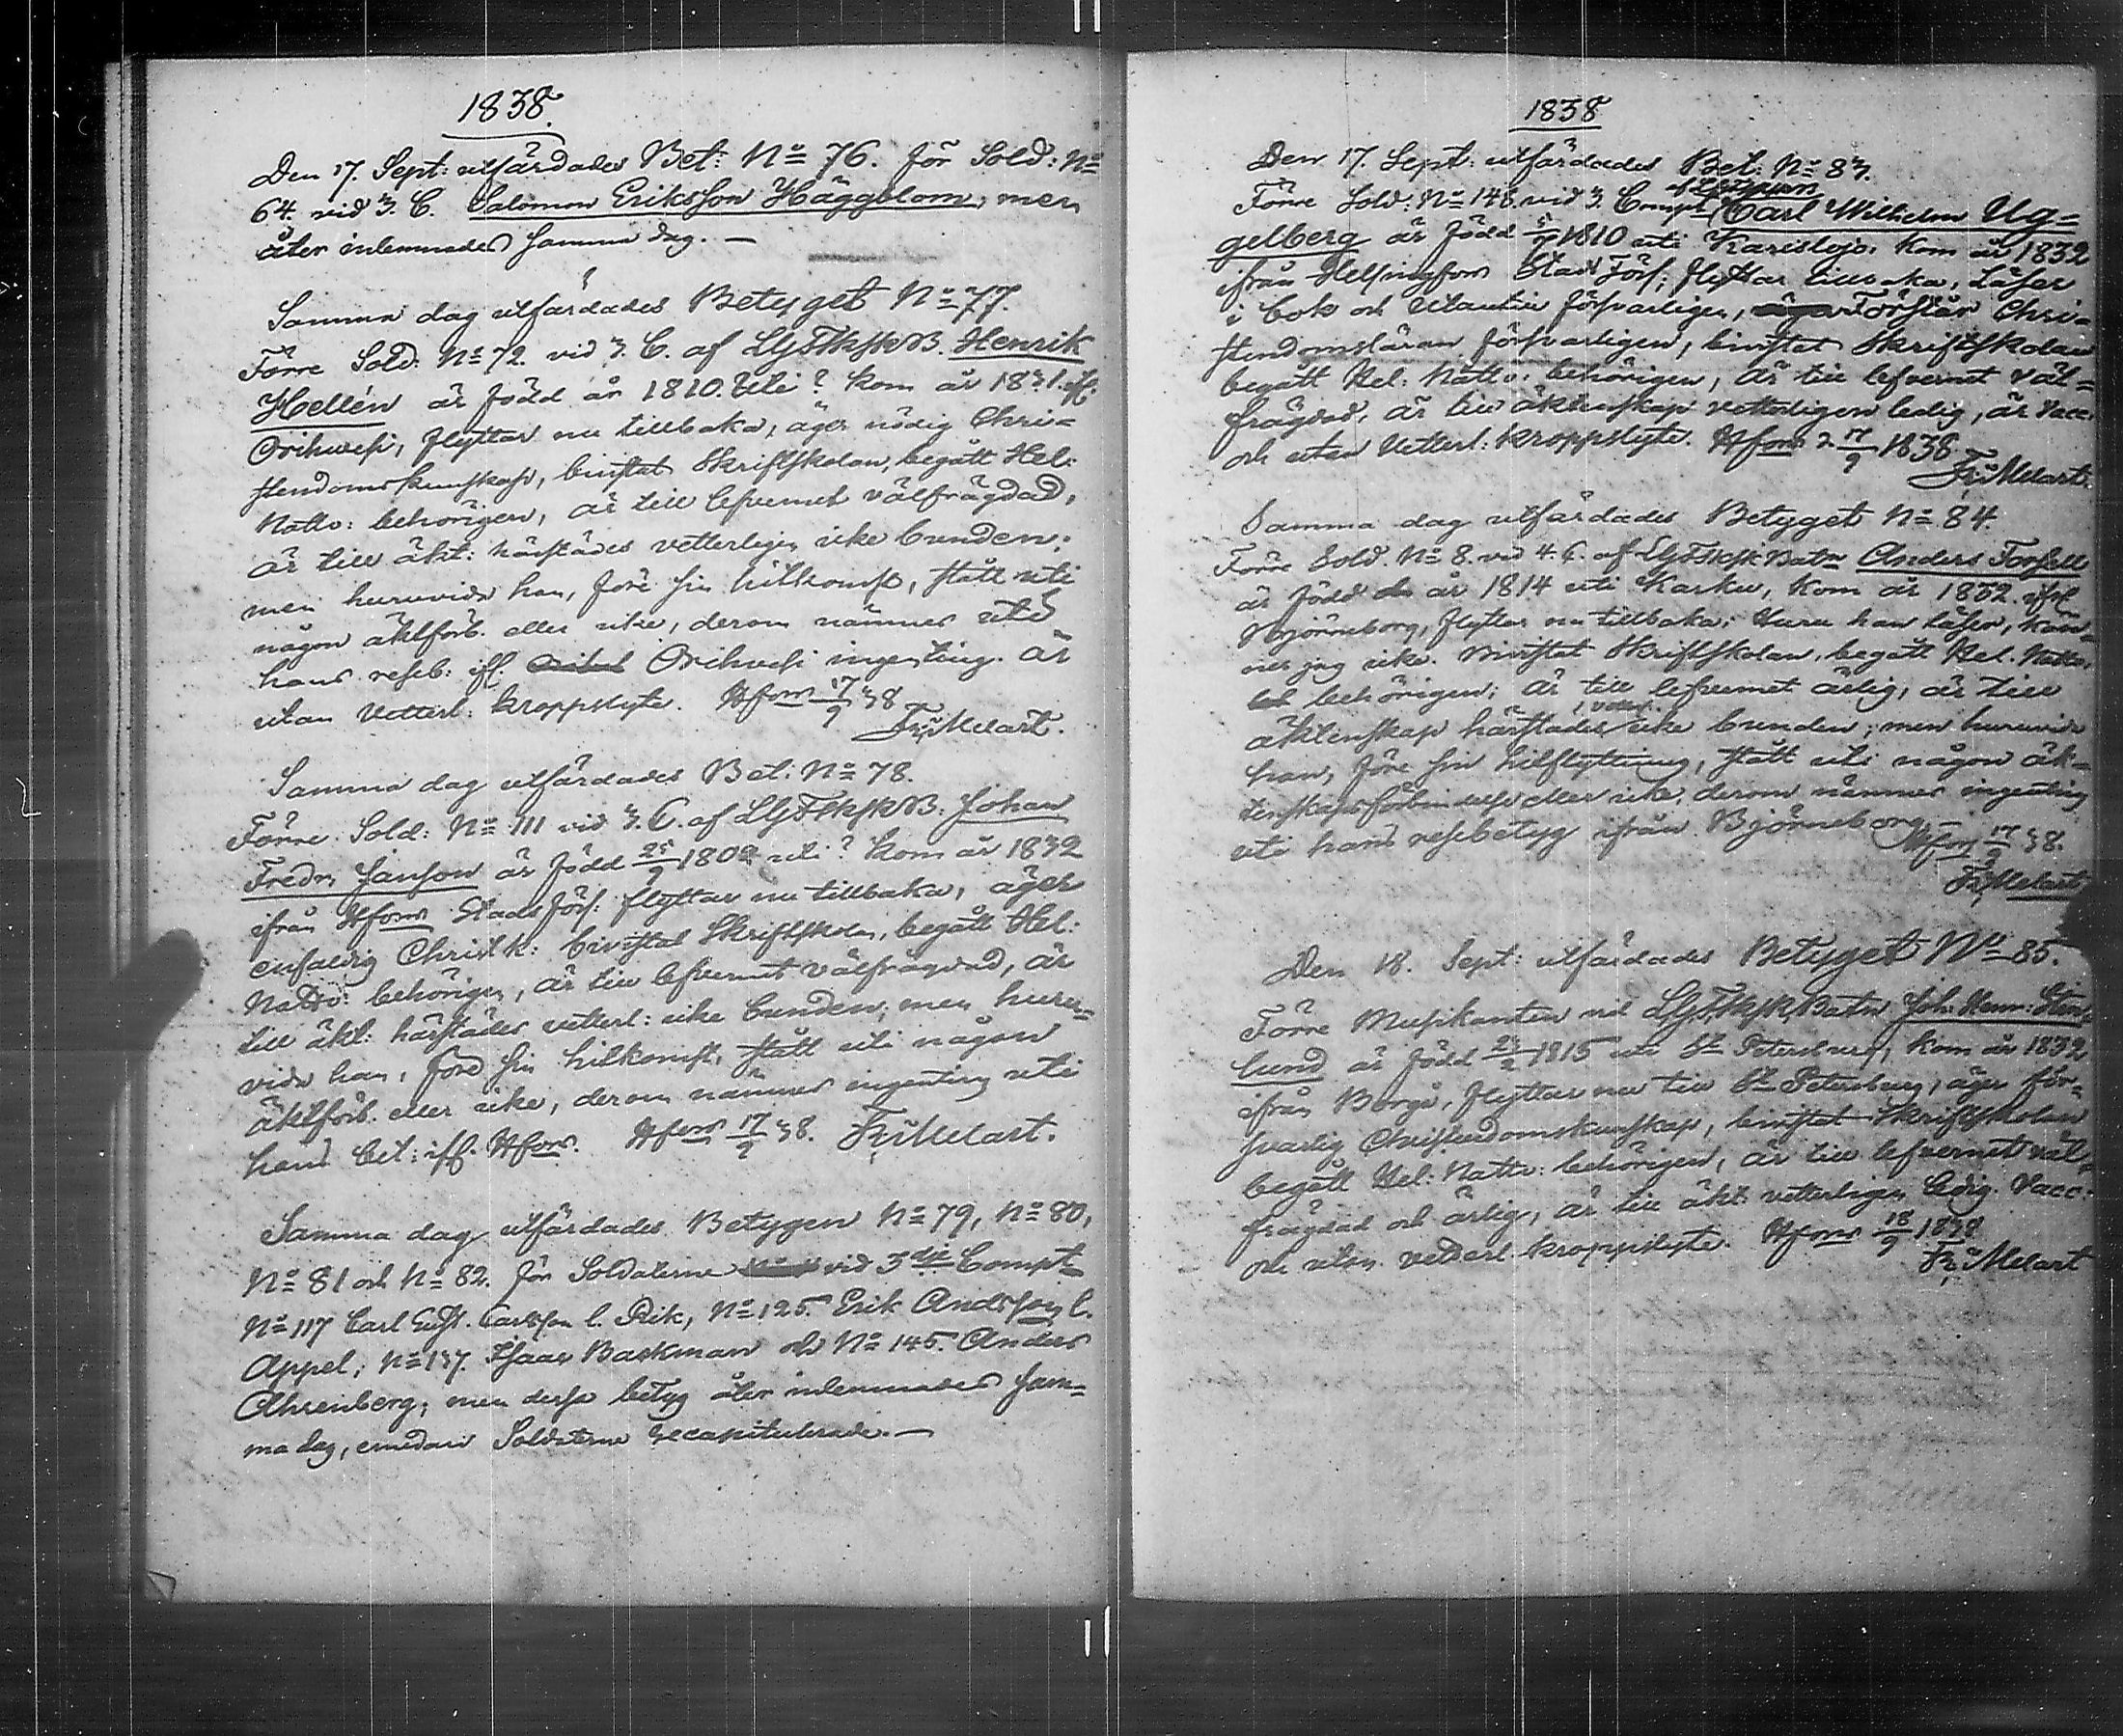 1838.
Den 17. Sept: utfärdades Bet: No 76. för Sold: No
64. vid 3. C. Salomon Eriksson Häggblom, men
åter inlemnades samma dag. —
Samma dag utfärdades Betyget No 77.
Förre Sold: No 72. vid 3. C. af LGFskskB. Henrik
Hellén är född år 1810. Uti? kom år 1831. ifr.
Orihvesi, flyttar nu tillbaka, äger nödig Chri-
stendomskunskap, bivistat Skriftskolan, begått Hel:
Nattv: behörigen, är till lefvernet välfrägdad,
är till äkt: härstädes vetterligen icke bunden;
men huruvida han, före sin hitkomst, stått uti
någon äktförb. eller icke, derom nämnes uti
hans reseb: ifr. Orihvesi ingenting. är
utan Vetterl: kroppslyte. Hfors 17/9 38
Fr: Melart.
Samma dag utfärdades Bet: No 78.
Förre Sold: No 111 vid 3. C. af LGFskskB. Johan
Fredr. Janson är född 25/9 1809 uti? kom år 1832
ifrån Hfors Stads förs: flyttar nu tillbaka, äger
enfaldig Christ k: bivistat Skriftskolan, begått Hel:
Nattv: behörigen, är till lefvernet välfrägdad, är
till äkt: härstädes vetterl: icke bunden, men huru-
vida han, före sin hitkomst, stått uti någon
äktförb. eller icke, derom nämnes ingenting uti
hans bet: ifr. Hfors. Hfors 17/9 38. Fr: Melart.
Samma dag utfärdades Betygen No 79, No 80,
No 81 och No 82. för Soldaterne vid 3die Compt
No 117 Carl Gust. Carlsson l. Rik, No 125. Erik Andsson l.
Appel; No 137. Isaac Backman och No 145. Anders
Ahrenberg; men dessa betyg åter inlemnades sam-
ma dag, emedan Soldaterne recapitulerade. —
1838
Den 17. Sept: utfärdades Bet: No 83.
Förre Sold: No 146 vid 3. Compt Carl Wilhelm Ug-
gelberg är född 5/7 1810 uti Karislojo. kom år 1832
ifrån Helsingfors Stads Förs: flyttar tillbaka, Läser
i bok och utantill försvarligen, Förstår Chri-
stendomsläran försvarligen, bivistat Skriftskolan
begått Hel: Nattv: behörigen, är till lefvernet väl-
frägdad, är till äktenskap vetterligen ledig, är Vacc.
och utan Vetterl: kroppslyte. Hfors d. 17/9 1838
Fr: Melart.
Samma dag utfärdades Betyget No 84.
Förre Sold. No 8. vid 4. C. af LGFskskBatn Anders Forsell
är född år 1814 uti Karku, kom år 1832. ifrå
Björneborg, flyttar nu tillbaka: Huru han läser, kän-
ner jag icke. Bivistat Skriftskolan, begått Hel. Nattv.
behörigen; är till lefvernet ärlig, är till
äktenskap härstädes vetterl. icke bunden; men huruvida
han, före sin hitflyttning, stått uti någon äk-
tenskapsförbindelse eller icke, derom nämnes ingenting
uti hans resebetyg ifrån Björneborg. —
Hfors 17/9 38.
Fr: Melart
Den 18. Sept: utfärdades Betyget No 85.
Förre Musikanten vid LGFskskBatn Joh. Henr: Sten-
lund är född 23/2 1815 uti St Petersburg, kom år 1832
ifrån Borgå, flyttar nu till St Petersburg, äger för-
svarlig Christendomskunskap, bivistat Skriftskolan
begått Hel: Nattv: behörigen, är till lefvernet väl-
frägdad och ärlig, är till äkt: vetterligen ledig. Vacc:
och utan vetterl. kroppslyte. Hfors 18/9 1838
Fr: Melart